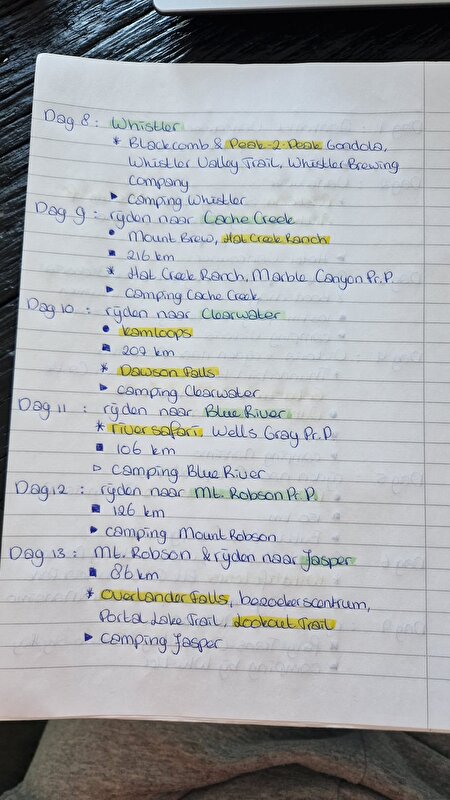 Dag 8 : Whistler
* Blackcomb & Peak-2-Peak Gondola,
Whistler Valley Trail, Whistler Brewing
Company
▶ camping Whistler
Dag 9 : rijden naar Cache Creek
• Mount Brew, Hat Creek Ranch
■ 216 km
* Hat Creek Ranch, Marble Canyon Pr. P.
▶ camping Cache Creek
Dag 10 : rijden naar Clearwater
• Kamloops
■ 207 km
* Dawson Falls
▶ camping Clearwater
Dag 11 : rijden naar Blue River
* river safari, Wells Gray Pr. P.
■ 106 km
▷ camping Blue River
Dag 12 : rijden naar Mt. Robson Pr. P.
■ 126 km
▶ camping Mount Robson
Dag 13 : Mt. Robson & rijden naar Jasper
■ 86 km
* Overlander Falls, bezoekerscentrum,
Portal Lake Trail, Lookout Trail
▶ camping Jasper